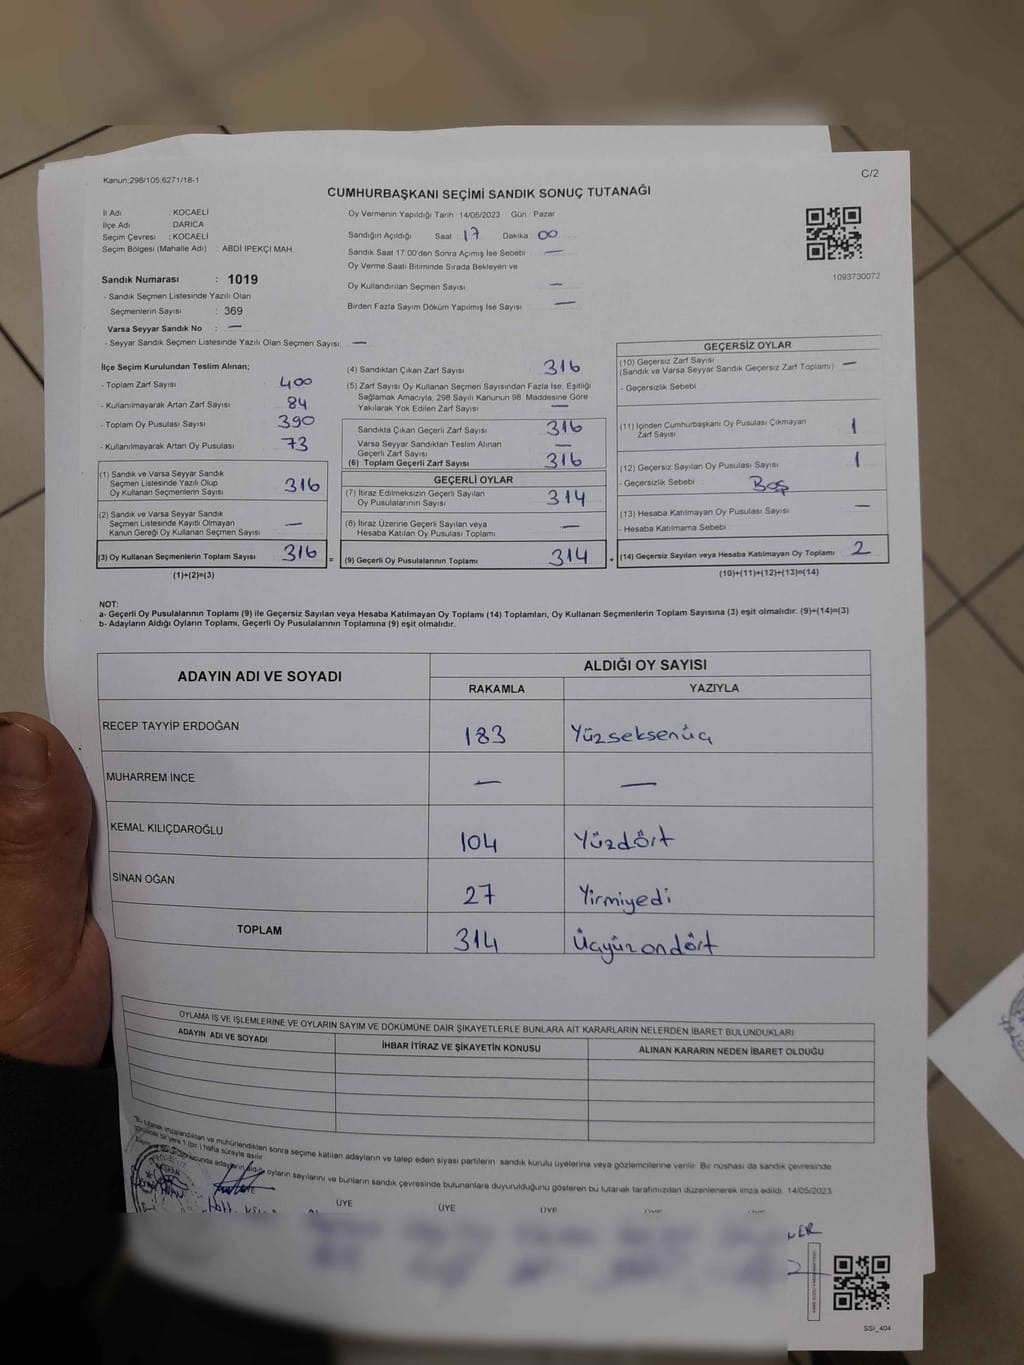 Kanun:298/105,6271/18-1
C/2
CUMHURBAŞKANI SEÇİMİ SANDIK SONUÇ TUTANAĞI
İl Adı : KOCAELİ
İlçe Adı : DARICA
Seçim Çevresi : KOCAELİ
Seçim Bölgesi (Mahalle Adı) : ABDİ İPEKÇİ MAH.
Sandık Numarası : 1019
- Sandık Seçmen Listesinde Yazılı Olan
Seçmenlerin Sayısı : 369
Varsa Seyyar Sandık No : —
- Seyyar Sandık Seçmen Listesinde Yazılı Olan Seçmen Sayısı : —
Oy Vermenin Yapıldığı Tarih : 14/05/2023 Gün : Pazar
Sandığın Açıldığı Saat : 17 Dakika : 00
Sandık Saat 17:00'den Sonra Açımış İse Sebebi : —
Oy Verme Saati Bitiminde Sırada Bekleyen ve
Oy Kullandırılan Seçmen Sayısı : —
Birden Fazla Sayım Döküm Yapılmış İse Sayısı : —
1093730072
İlçe Seçim Kurulundan Teslim Alınan;
- Toplam Zarf Sayısı : 400
- Kullanılmayarak Artan Zarf Sayısı : 84
- Toplam Oy Pusulası Sayısı : 390
- Kullanılmayarak Artan Oy Pusulası : 73
(1) Sandık ve Varsa Seyyar Sandık
Seçmen Listesinde Yazılı Olup
Oy Kullanan Seçmenlerin Sayısı : 316
(2) Sandık ve Varsa Seyyar Sandık
Seçmen Listesinde Kayıtlı Olmayan
Kanun Gereği Oy Kullanan Seçmen Sayısı : —
(3) Oy Kullanan Seçmenlerin Toplam Sayısı : 316
(1)+(2)=(3)
(4) Sandıktan Çıkan Zarf Sayısı : 316
(5) Zarf Sayısı Oy Kullanan Seçmen Sayısından Fazla İse, Eşitliği
Sağlamak Amacıyla, 298 Sayılı Kanunun 98. Maddesine Göre
Yakılarak Yok Edilen Zarf Sayısı : —
Sandıkta Çıkan Geçerli Zarf Sayısı : 316
Varsa Seyyar Sandıktan Teslim Alınan
Geçerli Zarf Sayısı : —
(6) Toplam Geçerli Zarf Sayısı : 316
GEÇERLİ OYLAR
(7) İtiraz Edilmeksizin Geçerli Sayılan
Oy Pusulalarının Sayısı : 314
(8) İtiraz Üzerine Geçerli Sayılan veya
Hesaba Katılan Oy Pusulası Toplamı : —
= (9) Geçerli Oy Pusulalarının Toplamı : 314
GEÇERSİZ OYLAR
(10) Geçersiz Zarf Sayısı
(Sandık ve Varsa Seyyar Sandık Geçersiz Zarf Toplamı) : —
- Geçersizlik Sebebi
(11) İçinden Cumhurbaşkanı Oy Pusulası Çıkmayan
Zarf Sayısı : 1
(12) Geçersiz Sayılan Oy Pusulası Sayısı : 1
- Geçersizlik Sebebi : Boş
(13) Hesaba Katılmayan Oy Pusulası Sayısı : —
- Hesaba Katılmama Sebebi
+ (14) Geçersiz Sayılan veya Hesaba Katılmayan Oy Toplamı : 2
(10)+(11)+(12)+(13)=(14)
NOT:
a- Geçerli Oy Pusulalarının Toplamı (9) ile Geçersiz Sayılan veya Hesaba Katılmayan Oy Toplamı (14) Toplamları, Oy Kullanan Seçmenlerin Toplam Sayısına (3) eşit olmalıdır. (9)+(14)=(3)
b- Adayların Aldığı Oyların Toplamı, Geçerli Oy Pusulalarının Toplamına (9) eşit olmalıdır.
ADAYIN ADI VE SOYADI
ALDIĞI OY SAYISI
RAKAMLA YAZIYLA
RECEP TAYYİP ERDOĞAN 183 Yüzseksenüç
MUHARREM İNCE — —
KEMAL KILIÇDAROĞLU 104 Yüzdört
SİNAN OĞAN 27 Yirmiyedi
TOPLAM 314 Üçyüzondört
OYLAMA İŞ VE İŞLEMLERİNE VE OYLARIN SAYIM VE DÖKÜMÜNE DAİR ŞİKAYETLERLE BUNLARA AİT KARARLARIN NELERDEN İBARET BULUNDUKLARI
ADAYIN ADI VE SOYADI İHBAR İTİRAZ VE ŞİKAYETİN KONUSU ALINAN KARARIN NEDEN İBARET OLDUĞU
imzalandıktan ve mühürlendikten sonra seçime katılan adayların ve talep eden siyasi partilerin sandık kurulu üyelerine veya gözlemcilerine verilir. Bir nüshası da sandık çevresinde
hafta süreyle asılır.
oyların sayılarını ve bunların sandık çevresinde bulunanlara duyurulduğunu gösteren bu tutanak tarafımızdan düzenlenerek imza edildi. 14/05/2023
ÜYE ÜYE ÜYE
SSİ_404